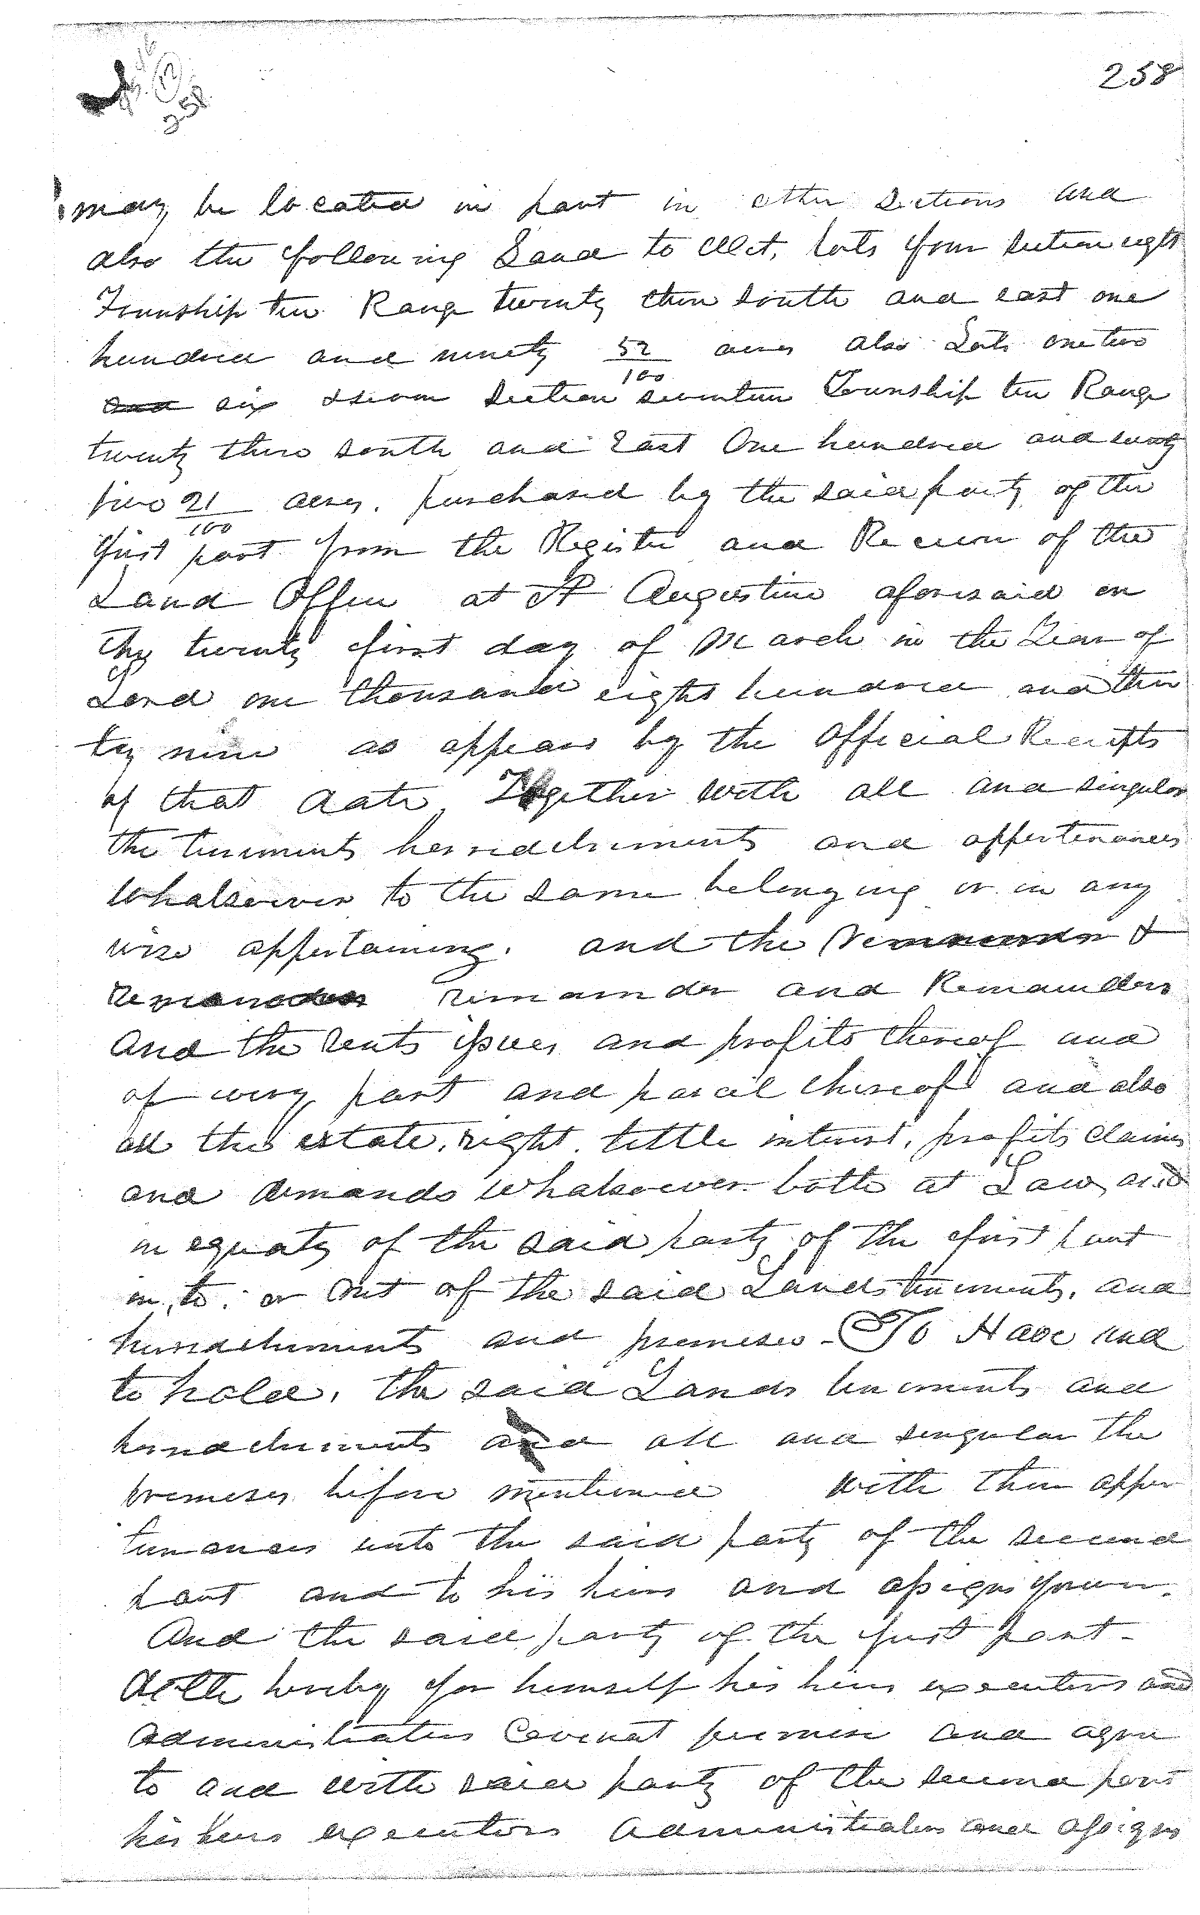 258
258
may be located in part in other Sections and
also the following Land to Wit, Lots four section eight
Township ten Range twenty three south and east one
hundred and ninety 52/100 acres also Lots one two
and six seven Section seventeen Township ten Range
twenty three south and East One hundred and
five 21/100 acres. purchased by the said party of the
first part from the Register and Receiver of the
Land Office at St Augustine aforesaid on
the twenty first day of March in the Year of
Lord one thousand eight hundred and thir
ty nine as appears by the Official Receipts
of that date, Together with all and singular
the tenements herridetiments and appertenances
Whatsoever to the same belonging or in any
wise appertaining. and the &
remainder and Remainders
and the rents issues and profits thereof and
of every part and parcil thereof and also
all the estate, right. tittle interest, profits claims
and demands whatsoever both at Law, and
in equaty of the said party of the first part
in, to, or out of the said Lands tenements, and
herridetiments and premeses - To Have and
to hold, the said Lands tenements and
herridetiments and all and singular the
premeses before mentioned with them apper
tenances unto the said party of the second
part and to his heirs and assigns forever.
And the said party of the first part -
doth hereby for himself his heirs executors and
administrators Covenat promise and agree
to and with said party of the second part
his heirs executors Administrators and assigns